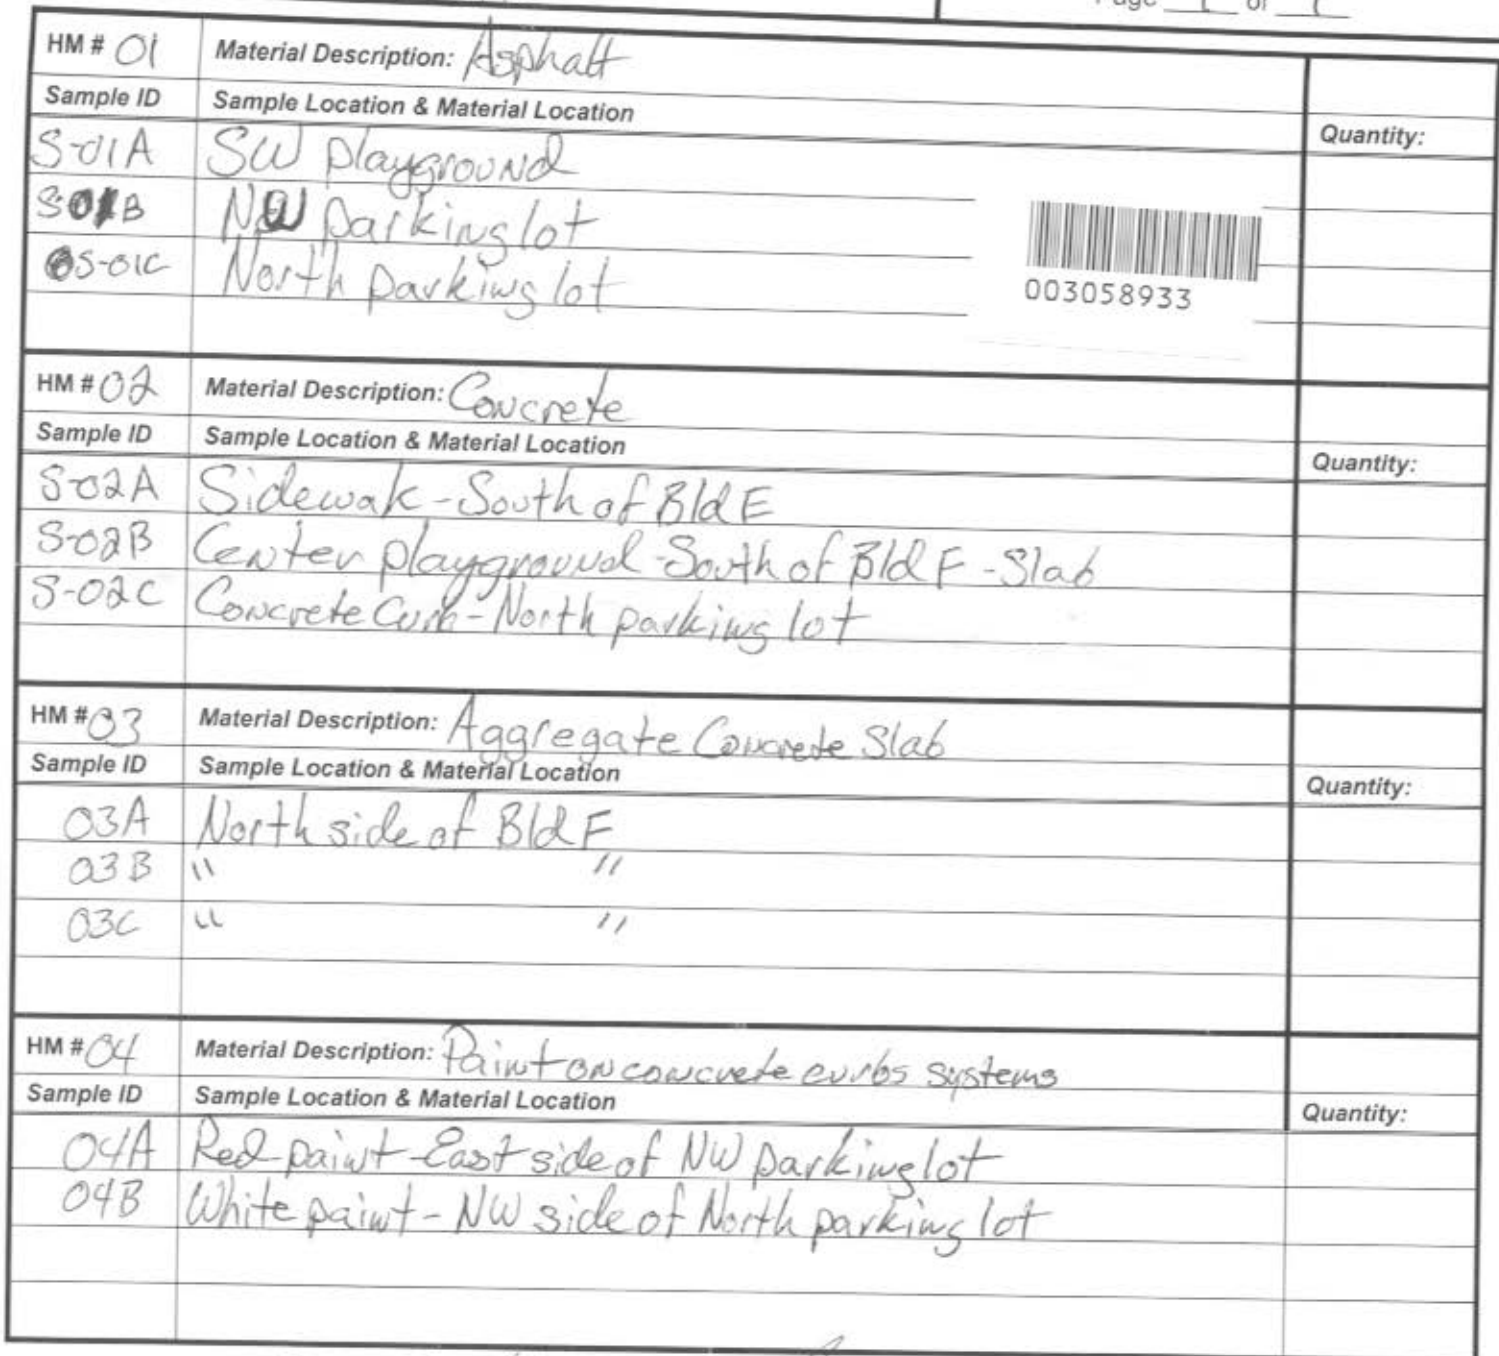 Page 1 of 1
HM # 01 Material Description: Asphalt
Sample ID Sample Location & Material Location Quantity:
S-01A SW playground
S-01B NW parking lot
S-01C North parking lot
003058933
HM # 02 Material Description: Concrete
Sample ID Sample Location & Material Location Quantity:
S-02A Sidewak - South of Bld E
S-02B Center playground - South of Bld F - Slab
S-02C Concrete Curb - North parking lot
HM # 03 Material Description: Aggregate Concrete Slab
Sample ID Sample Location & Material Location Quantity:
03A North side of Bld F
03B " "
03C " "
HM # 04 Material Description: Paint on concrete curbs systems
Sample ID Sample Location & Material Location Quantity:
04A Red paint - East side of NW parking lot
04B White paint - NW side of North parking lot